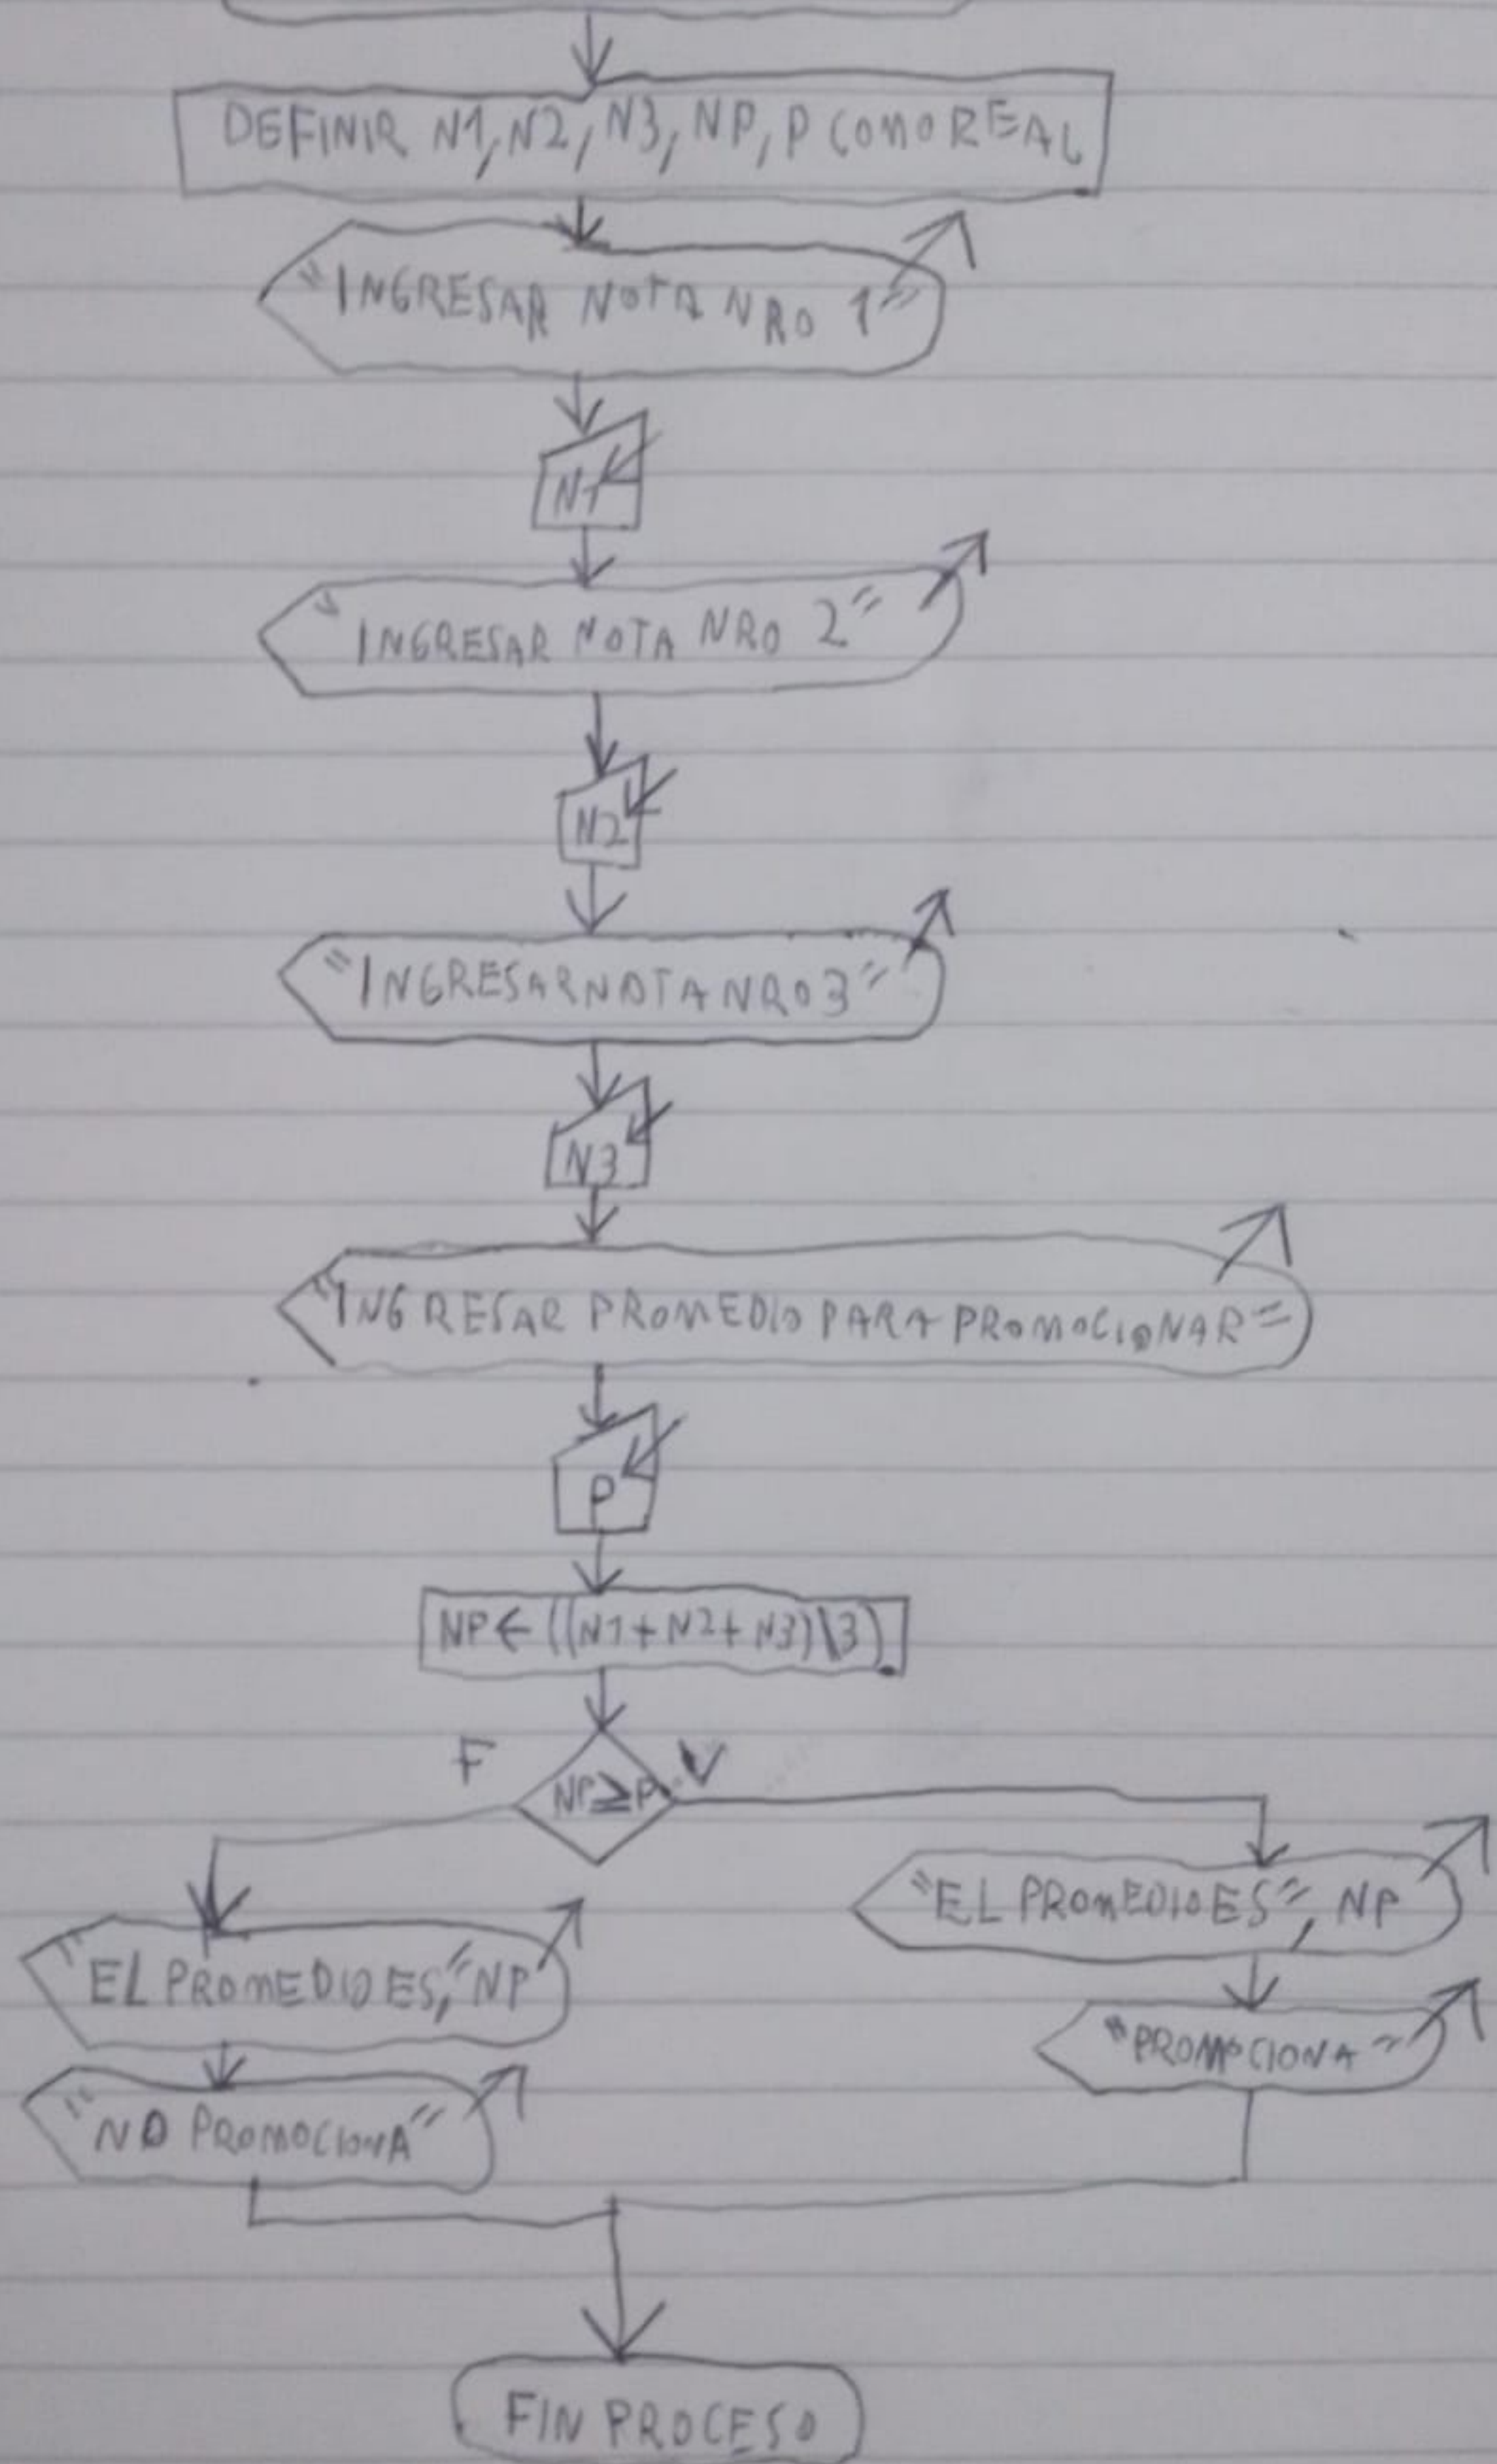 DEFINIR N1, N2, N3, NP, P COMO REAL
"INGRESAR NOTA NRO 1"
N1
"INGRESAR NOTA NRO 2"
N2
"INGRESAR NOTA NRO 3"
N3
"INGRESAR PROMEDIO PARA PROMOCIONAR"
P
NP ← ((N1+N2+N3)\3)
F
NP≥P
V
"EL PROMEDIO ES", NP
"PROMOCIONA"
"EL PROMEDIO ES," NP
"NO PROMOCIONA"
FIN PROCESO